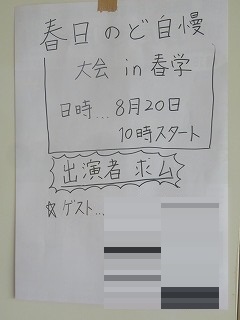 春日のど自慢
大会 in 春学
日時...8月20日
10時スタート
出演者 求ム
☆ゲスト...